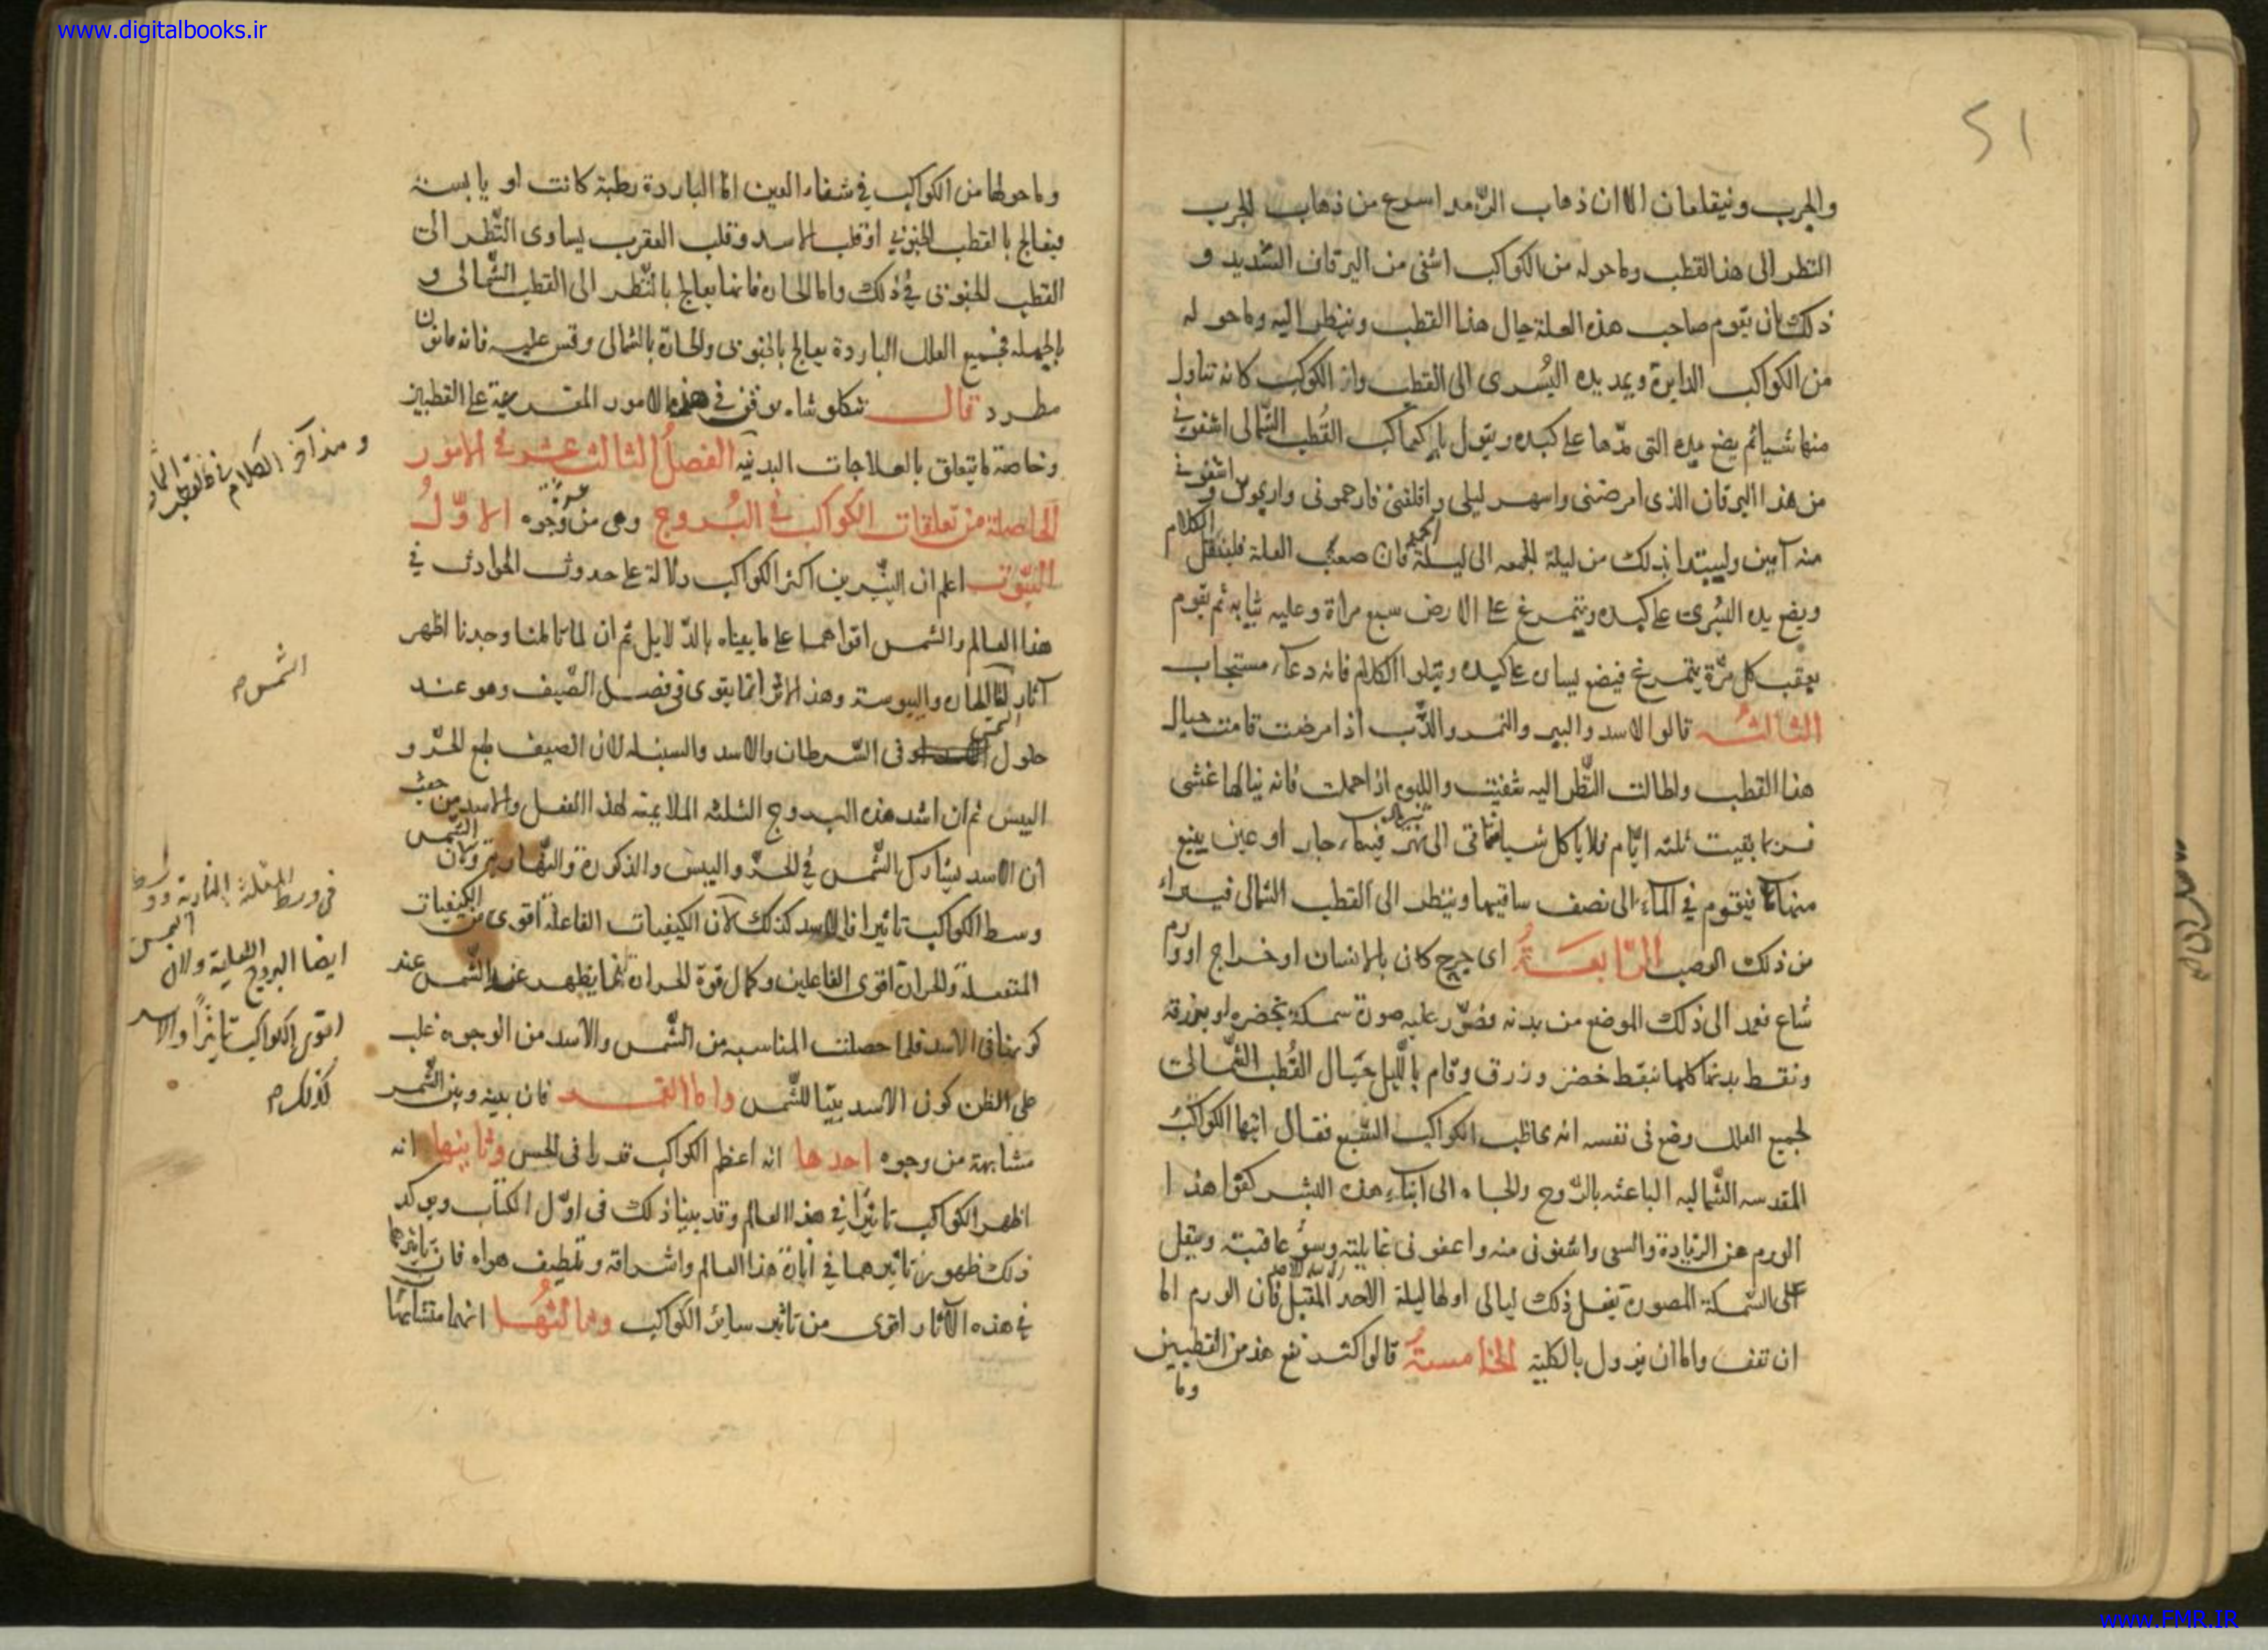 www.digitalbooks.ir
۵۱
والجرب وينقلعان الا ان ذهاب الرّمد اسرع من ذهاب الجرب
النظر الى هذا القطب وما حوله من الكواكب اشفى من اليرقان الشديد و
ذلك بان يقوم صاحب هذه العلة حيال هذا القطب وينظر اليه وما حوله
من الكواكب الدايرة ويمد يده اليُسرى الى القطب كانه تناول
منها شيا ثم يضع يده التى مدّها على كبده ويقول يا كواكب القُطب الشّمالى اشفونى
من هذا اليرقان الذى امرضنى واسهر ليلى واقلقنى فارحمونى واشفونى
منه آمين وليبتدا بذلك من ليلة الجمعه الى ليلة الجمعه فان صعب العلة الكلام
ويضع يده اليُسرى على كبده ويتمرغ على الارض سبع مراة وعليه ثيابه ثم يقوم
بعقب كل مرّة يتمرغ فيضع يساره على كبده ويتلوا الكلام فانه دعاء مستجاب
الثالثه قالوا الاسد والببر والنمر والدّب اذا مرضت قامت حيال
هذا القطب واطالت النّظر اليه شفيت واللبوه اذا حملت فانه ينالها غشى
فربما بقيت ثلثه ايّام فلا ياكل شيا فتاتى الى نهر فيه ماء جار او عين ينبع
منها ماء فيقوم فى الماء الى نصف ساقيها وينظر الى القطب الشمالى فيبراء
من ذلك الوصب الرّابعَة اى جرح كان بالانسان او خراج او ورم
شاع فعمد الى ذلك الموضع من بدنه فصوّر عليه صورة سمكة بخضره او بزرقة
ونقط بدنها كلها بنقط خضر وزرق وقام بالليل حيال القُطب الشّمالى
لجميع العلل وضع فى نفسه انه يخاطب الكواكب السّبع فقال ايتها الكواكبُ
المقدسه الشّماليه الباعثه بالرّوح والحياه الى ابناء هذه البشر كفوا هذا
الورم عن الزيادة والسعى واشفونى منه واعفونى غايلته وسؤ عاقبته ويتفل
على السّمكة المصورة يفعل ذلك ليالى اولها ليلة الاحد المقبل فان الورم اما
ان تقف واما ان يزول بالكلية الخامسةُ قالوا اكثر نفع هذين القطبين
وما
وما حولها من الكواكب فى شفاء العين اما الباردة رطبة كانت او يابسة
فيعالج بالقطب الجنوبى او قلب الاسد وقلب العقرب يساوى النّظر الى
القطب الجنوبى فى ذلك واما الحاره فانها يعالج بالنّظر الى القطب الشّمالى و
بالجمله فجميع العلل الباردة يعالج بالجنوبى والحارة بالشمالى وقس عليه فانه قانون
مطرد قال تنكلوشاه فى هذه الامور المتفرعة على القطبين
وخاصة ما يتعلق بالعلاجات البدنيه الفصلُ الثالث عشر فى الامور
الحاصلة من تعلقات الكواكب فى البُروج وهى من وجوه الاوّلُ
البُيُوت اعلم ان النيّرين اكثر الكواكب دلالة على حدوث الحوادث فى
هذا العالم والشمس اقواهما على ما بيناه بالدّلايل ثم ان لما تاملنا وجدنا اظهر
آثارها الحراره واليبوسة وهذا الاثر انما يقوى فى فصل الصّيف وهو عند
حلول الشمس فى السّرطان والاسد والسنبله لان الصيف طبع الحرّ و
اليبس ثم ان اشد هذه البروج الثلثه الملايمة لهذا الفصل والاسد من حيث
ان الاسد يشارك الشّمس فى الحرّ واليبس والذكورة والنّهارية ولان الشّمس
وسط الكواكب تاثيرا فالاسد كذلك لان الكيفيات الفاعلة اقوى من الكيفيات
المنفعلة والحرارة اقوى الفاعلين وكمال قوة الحرارة انما يظهر عن الشّمس عند
كونها فى الاسد فلما حصلت المناسبه بين الشّمس والاسد من الوجوه غلب
على الظن كون الاسد بيتا للشّمس واما القمر فان بينه وبين الشّمس
مشابهة من وجوه احدها انه اعظم الكواكب قدرا فى الحس وثانيها انه
اظهر الكواكب تاثيرا فى هذا العالم وقد بينا ذلك فى اوّل الكتاب ويوكد
ذلك ظهور تاثيرهما فى انارة هذا العالم واشراقه وتلطيف هواه فان تاثيرهما
فى هذه الآثار اقوى من تاثير سائر الكواكب وثالثُها انهما متشابها
ومن آخر الكلام فى
الشمس م
فى وسط المثلثة النارية ووسط
ايضا البروج ولان الشمس
اقوى الكواكب تاثيرًا والاسد
كذلك م
www.FMR.IR